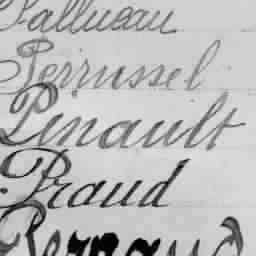 Pallueau
Perrussel
Pinault
Praud
Renaud